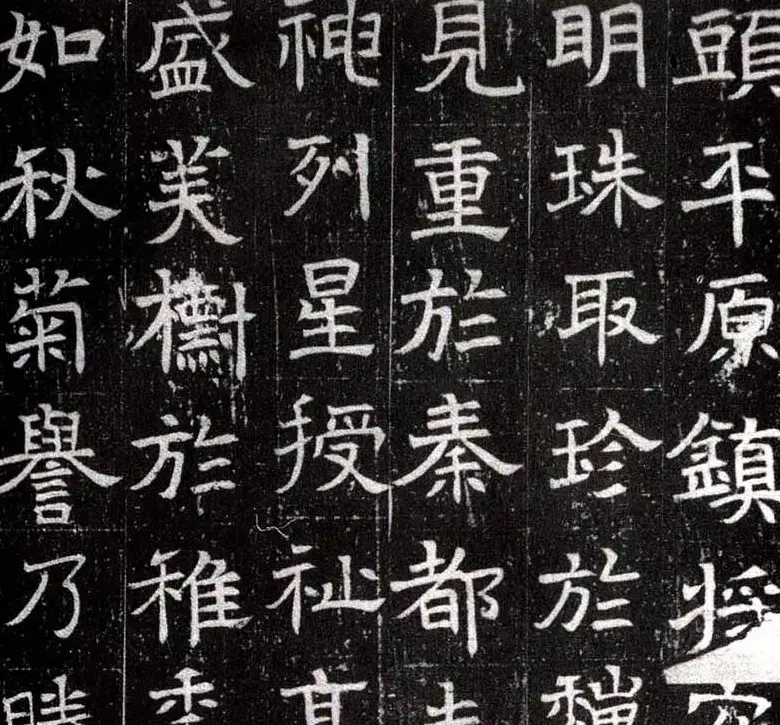 頭平原鎮將
明珠取珍於魏
見重於秦都
神列星授祉高
盛美樹於稚
如秋菊譽乃